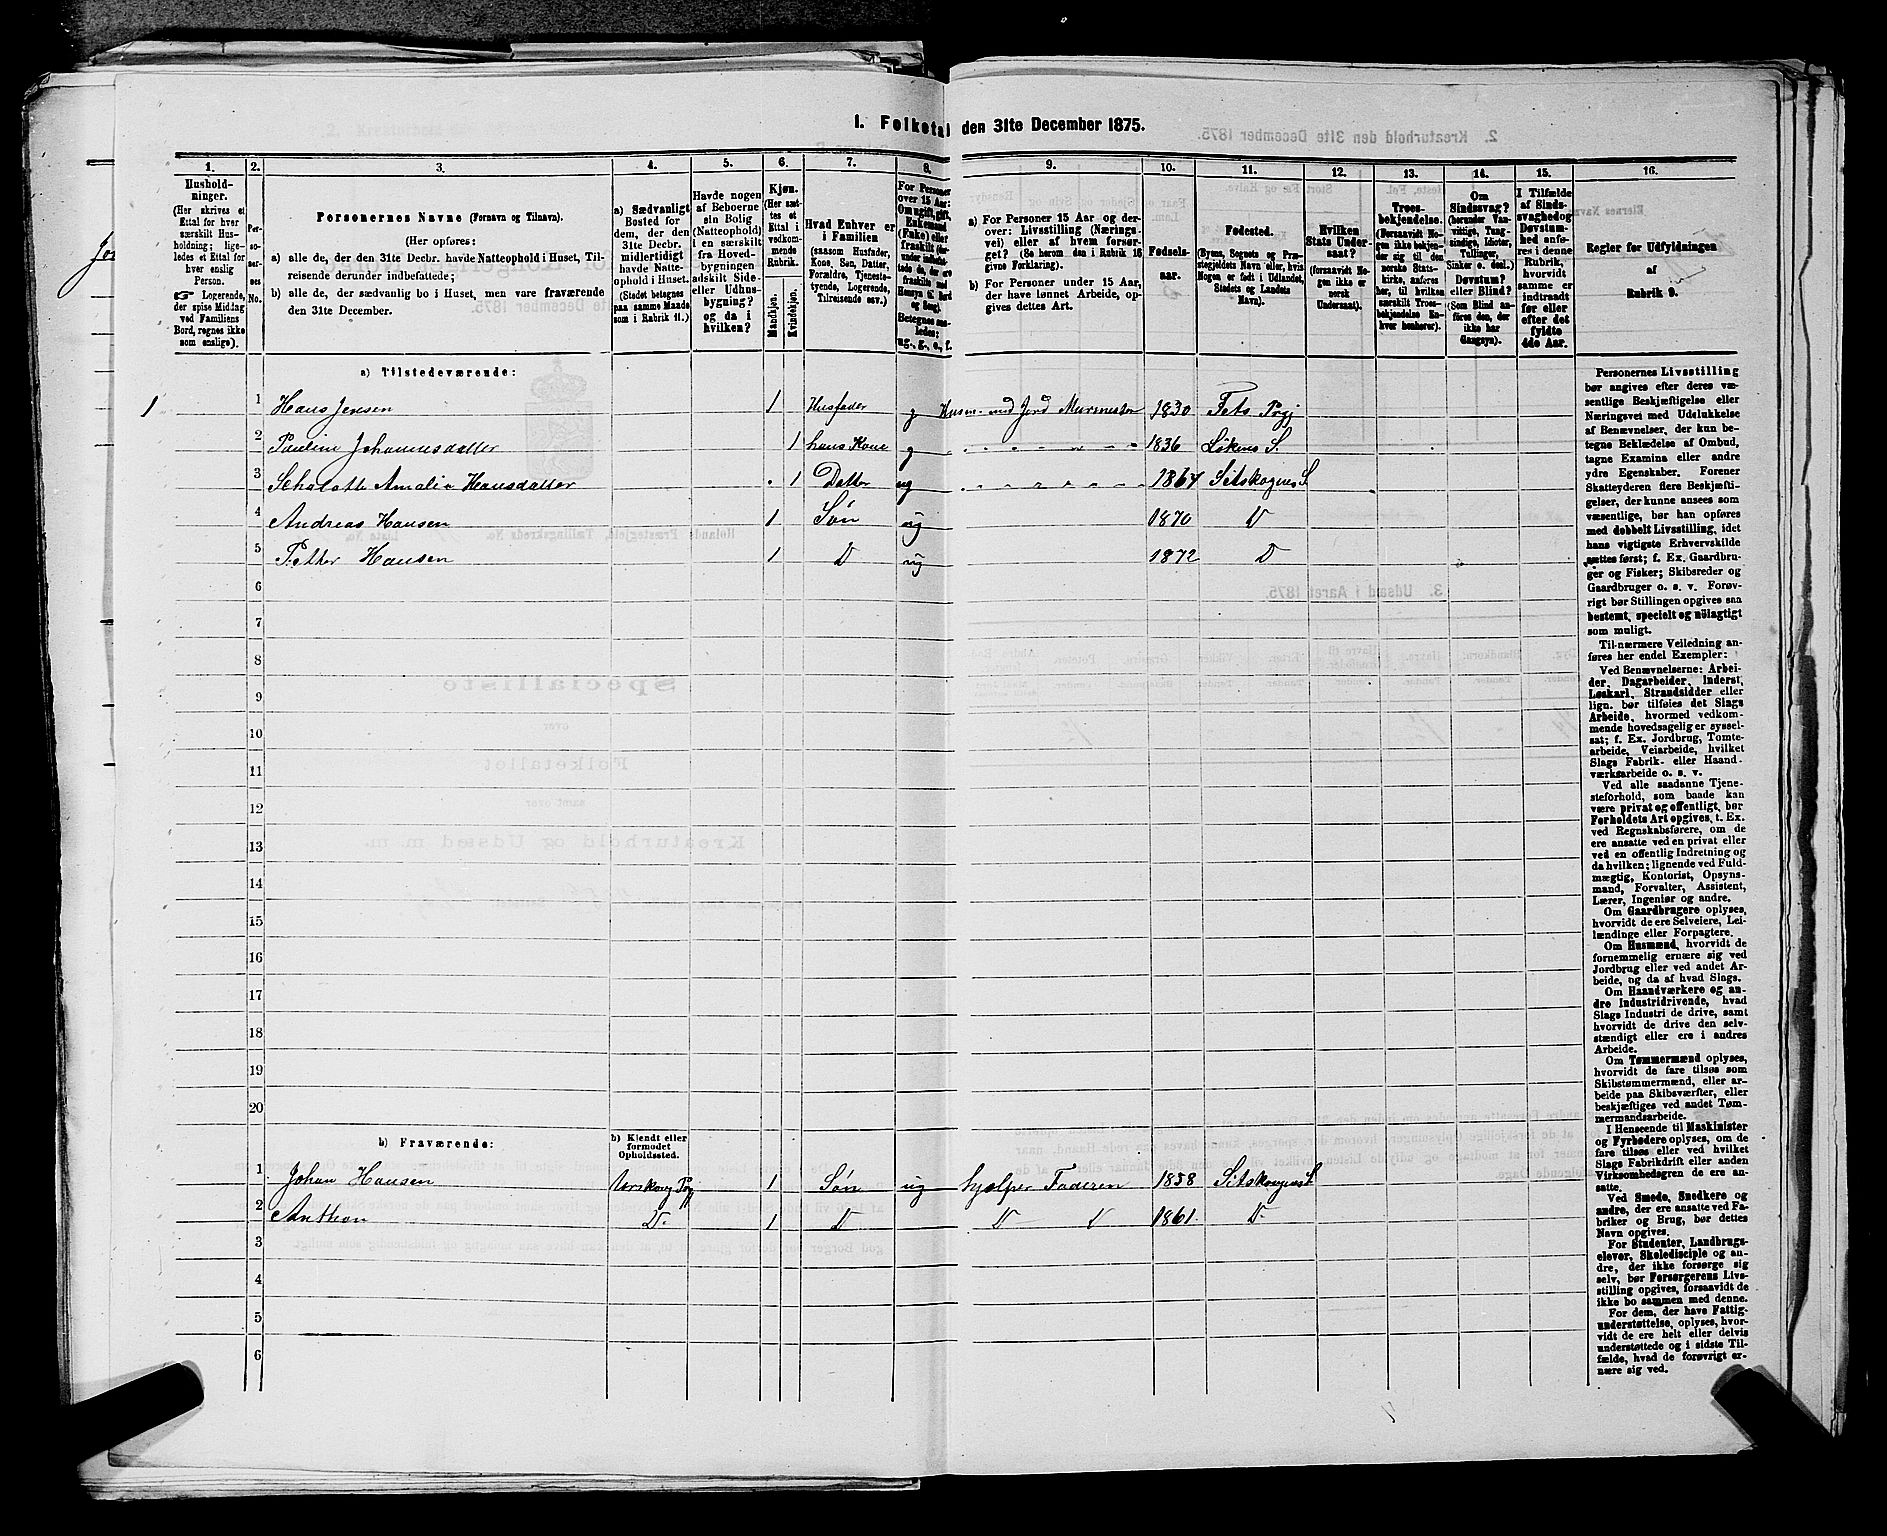 I. Folketal den 31te December 1875.
1. 2. 3. 4. 5. 6. 7. 8. 9. 10. 11. 12. 13. 14. 15. 16.
Husholdninger.
(Her skrives et
Ettal for hver
særskilt Husholdning;
ligeledes et Ettal for
hver enslig
Person.
Logerende,
der spise Middag
ved Familiens
Bord, regnes ikke
som enslige).
Personernes No.
Personernes Navne (Fornavn og Tilnavn).
(Her opføres:
a) alle de, der den 31te Decbr. havde Natteophold i Huset, Tilreisende
derunder indbefattede;
b) alle de, der sædvanlig bo i Huset, men vare fraværende
den 31te December.
a) Sædvanligt
Bosted for
dem, der den
31te Decbr.
midlertidigt
havde Natteophold
i Huset.
(Stedet betegnes
paa samme Maade
som i Rubrik 11.)
Havde nogen
af Beboerne
sin Bolig
(Natteophold)
i en særskilt
fra Hovedbygningen
adskilt Sideeller
Udhusbygning?
og da i
hvilken?
Kjøn.
(Her sættes
et
Ettal i
vedkommende
Rubrik.
Mandkjøn.
Kvindekjøn.
Hvad Enhver er
i Familien
(saasom Husfader,
Kone, Søn, Datter,
Forældre, Tjenestetyende,
Logerende,
Tilreisende osv.)
For Personer
over 15 Aar:
Om ugift, gift,
Enkemand
(Enke) eller
fraskilt
Betegnes saaledes:
ug., g., e., f.
a) For Personer 15 Aar og derover:
Livsstilling (Næringsvei)
eller af hvem forsørget?
(Se herom den i Rubrik 16
givne Forklaring).
b) For Personer under 15 Aar,
der have lønnet Arbeide, opgives
dettes Art.
Fødselsaar.
Fødested.
(Byens, Sognets og Præstegjeldets
Navn eller, hvis
Nogen er født i Udlandet,
Stedets og Landets
Navn).
Hvilken
Stats Undersaat?
(forsaavidt Nogen
ikke er
norsk
Undersaat).
Troesbekjendelse.
(Forsaavidt Nogen
ikke bekjender
sig til den
norske Statskirke,
anføres
her, til hvilken
særskilt Troesbekjendelse
Enhver
henhører).
Om
Sindssvag?
(herunder Vanvittige,
Tungsindige,
Idioter,
Tullinger,
Sinker o. desl.)
Døvstum?
eller Blind?
(Som Blind anføres
den, der
ikke har
Gangsyn).
I Tilfælde
af Sindssvaghed og
Døvstumhed
anføres
i denne
Rubrik,
hvorvidt
samme er
indtraadt
før eller
efter det
fyldte
4de Aar.
Regler for Udfyldningen
af
Rubrik 9.
a) Tilstedeværende:
1 1 Hans Jensen 1 Husfader g Husm. med Jord Murmester 1830 Fets Pgj
2 Pauline Johannesdatter 1 hans Kone g 1836 Løkens S.
3 Schalotte Amalie Hansdatter 1 Datter ug 1864 Sitskognes S
4 Andreas Hansen 1 Søn ug 1870 D
5 Petter Hansen 1 D ug 1872 D
6
7
8
9
10
11
12
13
14
15
16
17
18
19
20
b) Fraværende:
b) Kjendt eller
formodet
Opholdssted.
1 Johan Hansen Urskoug Pgj 1 Søn ug hjælper Faderen 1858 Sitskougens S
2 Anthon D. 1 D D D 1861. D.
3
4
5
6
Personernes Livsstilling
bør angives efter deres væsentlige
Beskjæftigelse eller
Næringsvei med Udelukkelse
af Benævnelser, der kun betegne
Beklædelse af Ombud,
tagne Examina eller andre
ydre Egenskaber. Forener
Skatteyderen flere Beskjæftigelser,
der kunne ansees som
væsentlige, bør han opføres
med dobbelt Livsstilling, idet
hans vigtigste Erhvervskilde
sættes først; f. Ex. Gaardbruger
og Fisker; Skibsreder og
Gaardbruger o. s. v. Forøvrigt
bør Stillingen opgives saa
bestemt, specielt og nøiagtigt
som muligt.
Til nærmere Veiledning anføres
her endel Exempler:
Ved Benævnelserne: Arbeider,
Dagarbeider, Inderst,
Løskarl, Strandsidder eller
lign. bør tilføies det Slags
Arbeide, hvormed vedkommende
hovedsagelig er sysselsat;
f. Ex. Jordbrug, Tomtearbeide,
Veiarbeide, hvilket
Slags Fabrik- eller Haandværksarbeide
o. s. v.
Ved alle saadanne Tjenesteforhold,
som baade kan
være privat og offentligt, bør
Forholdets Art opgives, t. Ex.
ved Regnskabsførere, om de
ere ansatte ved en privat eller
ved en offentlig Indretning og
da hvilken; lignende ved Fuldmægtig,
Kontorist, Opsynsmand,
Forvalter, Assistent,
Lærer, Ingeniør og andre.
Om Gaardbrugere oplyses,
hvorvidt de ere Selveiere, Leilændinge
eller Forpagtere.
Om Husmænd, hvorvidt de
fornemmelig ernære sig ved
Jordbrug eller ved andet Arbeide,
og da af hvad Slags.
Om Haandværkere og andre
Industridrivende, hvad
Slags Industri de drive, samt
hvorvidt de drive den selvstændigt
eller ere i andres
Arbeide.
Om Tømmermænd oplyses,
hvorvidt de fare tilsøs som
Skibstømmermænd, eller arbeide
paa Skibsværfter, eller
beskjæftiges ved andet Tømmermandsarbeide.
I Henseende til Maskinister
og Fyrbødere oplyses, om de
fare tilsøs eller ved hvilket
Slags Fabrikdrift eller anden
Virksomhedsgren de ere ansatte.
Ved Smede, Snedkere og
andre, der ere ansatte ved Fabriker
og Brug, bør dettes
Navn opgives.
For Studenter, Landbrugselever,
Skoledisciple og andre,
der ikke forsørge sig
selv, bør Forsørgerens Livsstilling
opgives, forsaavidt de
ikke bo sammen med denne.
For dem, der have Fattigunderstøttelse,
oplyses, hvorvidt
de ere helt eller delvis
understøttede og i sidste Tilfælde,
hvad de forøvrigt ernære
sig ved.